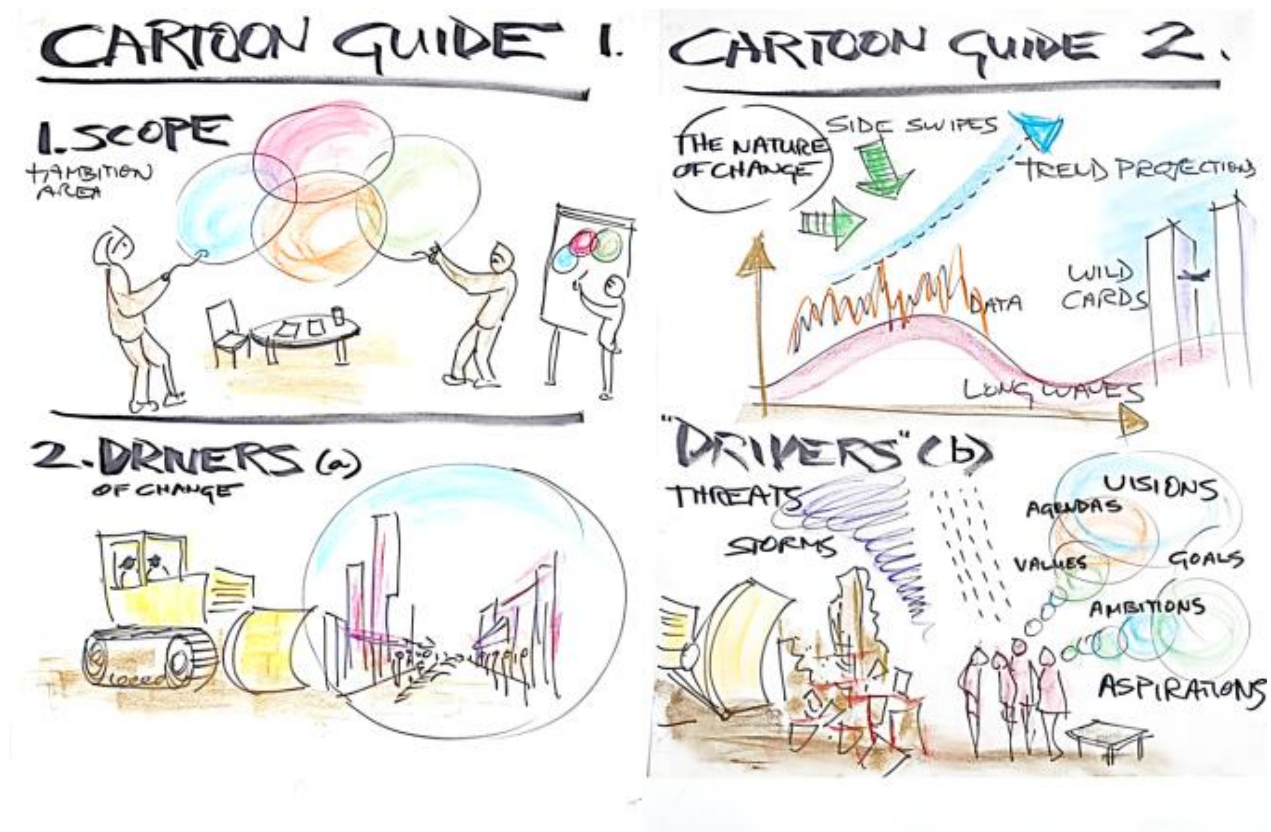 CARTOON GUIDE 1.
1. SCOPE
+ AMBITION
AREA
2. DRIVERS (a)
OF CHANGE
CARTOON GUIDE 2.
THE NATURE
OF CHANGE
SIDE SWIPES
TREND PROJECTIONS
WILD
CARDS
DATA
LONG WAVES
"DRIVERS" (b)
THREATS
STORMS
VISIONS
AGENDAS
VALUES
GOALS
AMBITIONS
ASPIRATIONS